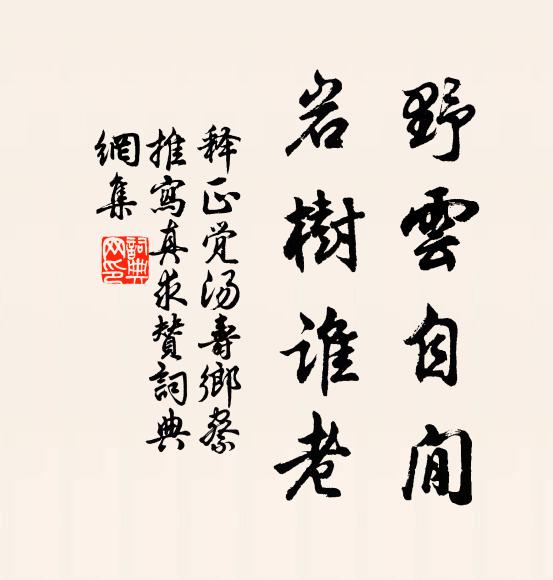 野雲自閒
岩樹誰老
释正觉湯壽鄉察
推寫真求贊詞典
網集
詞典網印